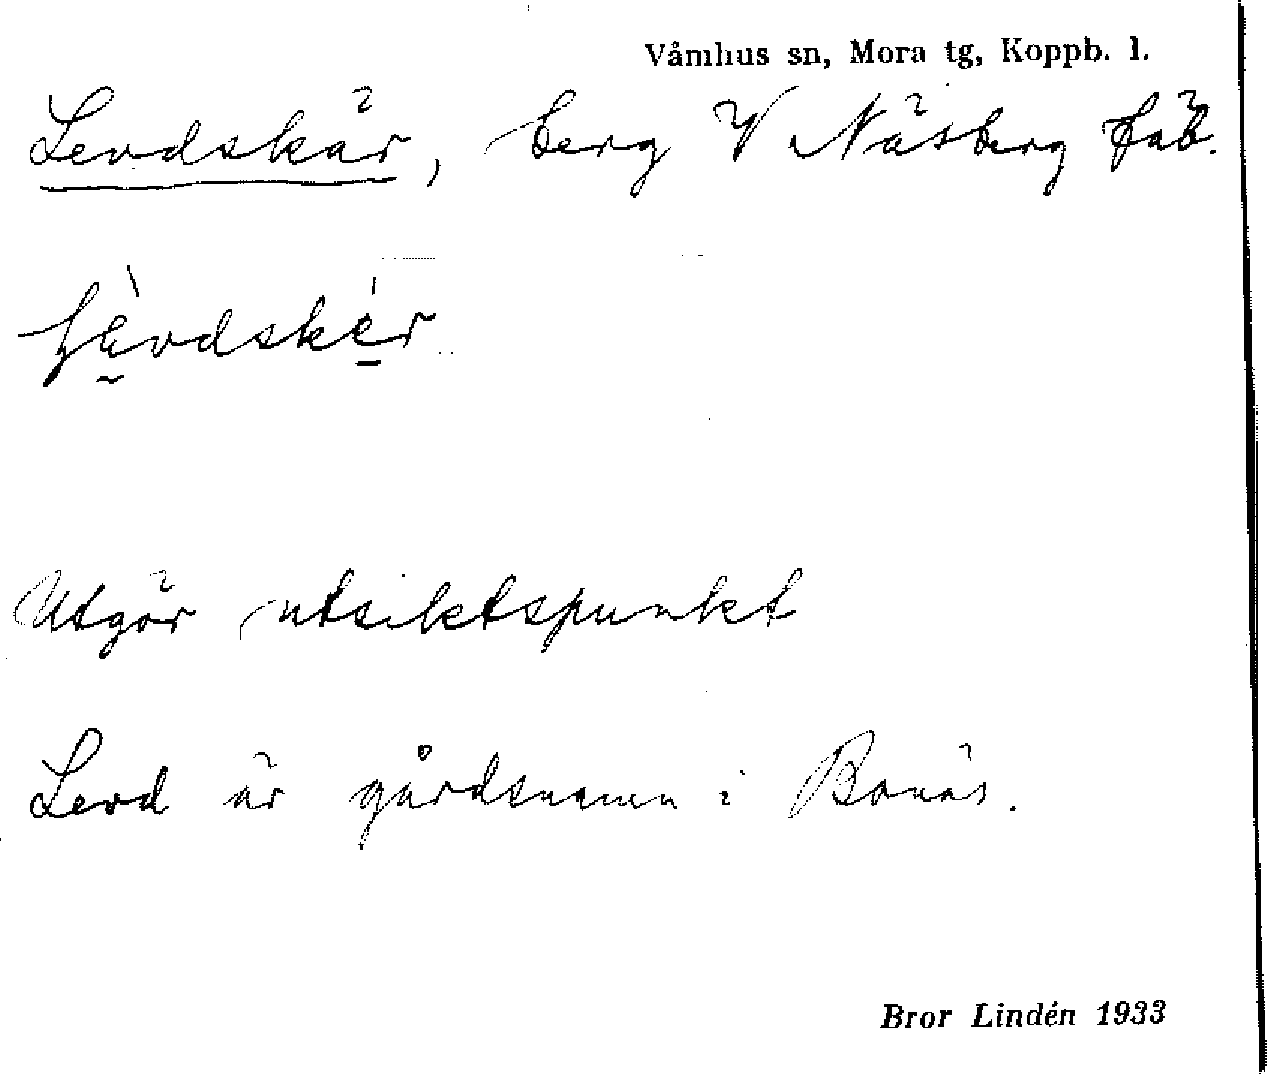 Våmhus sn, Mora tg, Koppb. l.
Levdskär, berg V Näsberg fäb.
lèvdskér
Utgör utsiktspunkt
Levd är gårdsnamn i Bonäs.
Bror Lindén 1933